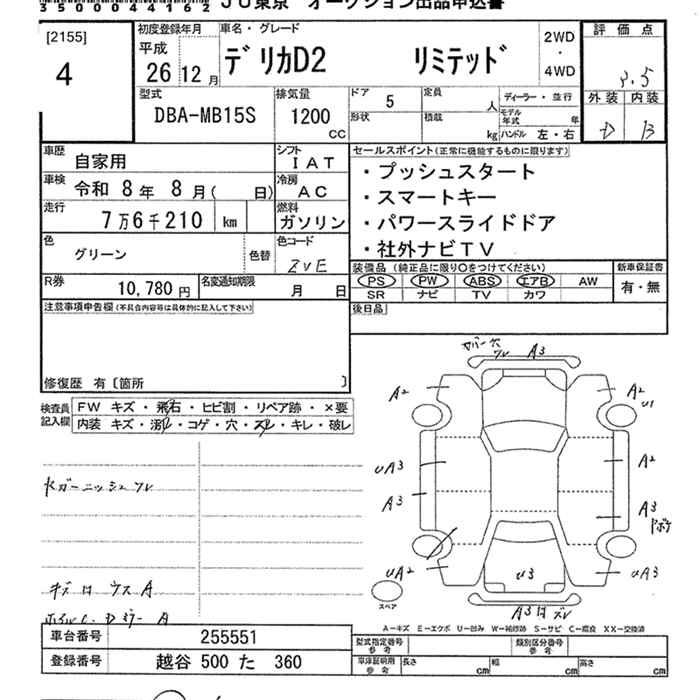 3500044162 JU東京 オークション出品申込書
[2155]
4
初度登録年月 車名・グレード 2WD・4WD 評価点
平成 26 12 月 デリカD2 リミテッド 3.5
外装 内装
D B
型式 排気量 ドア 5 定員 人 ディーラー・並行
DBA-MB15S 1200 CC 形状 積載 kg モデル年式 年
ハンドル 左・右
車歴 自家用 シフト IAT
車検 令和 8年 8月( 日) 冷房 AC
走行 7万6千210 km 燃料 ガソリン
色 グリーン 色替 色コード ZVE
R券 10,780 円 名変通知期限 月 日
セールスポイント(正常に機能するものに限ります)
・プッシュスタート
・スマートキー
・パワースライドドア
・社外ナビTV
装備品(純正品に限り○をつけてください) 新車保証書
PS PW ABS エアB AW 有・無
SR ナビ TV カワ
後日品
注意事項申告欄(不具合内容等は具体的に記入して下さい)
修復歴 有〔箇所 〕
検査員記入欄 FW キズ・飛石・ヒビ割・リペア跡・×要
内装 キズ・汚れ・コゲ・穴・スレ・キレ・破レ
A3
A2 A2
U1
UA3 A2
A3 A3
UA2 U3 UA3
スペア
A3
A−キズ E−エクボ U−凹み W−補修跡 S−サビ C−腐食 XX−交換済
車台番号 255551
登録番号 越谷 500 た 360
型式指定番号 参考 類別区分番号 参考
車庫証明用 参考 長さ cm 幅 cm 高さ cm